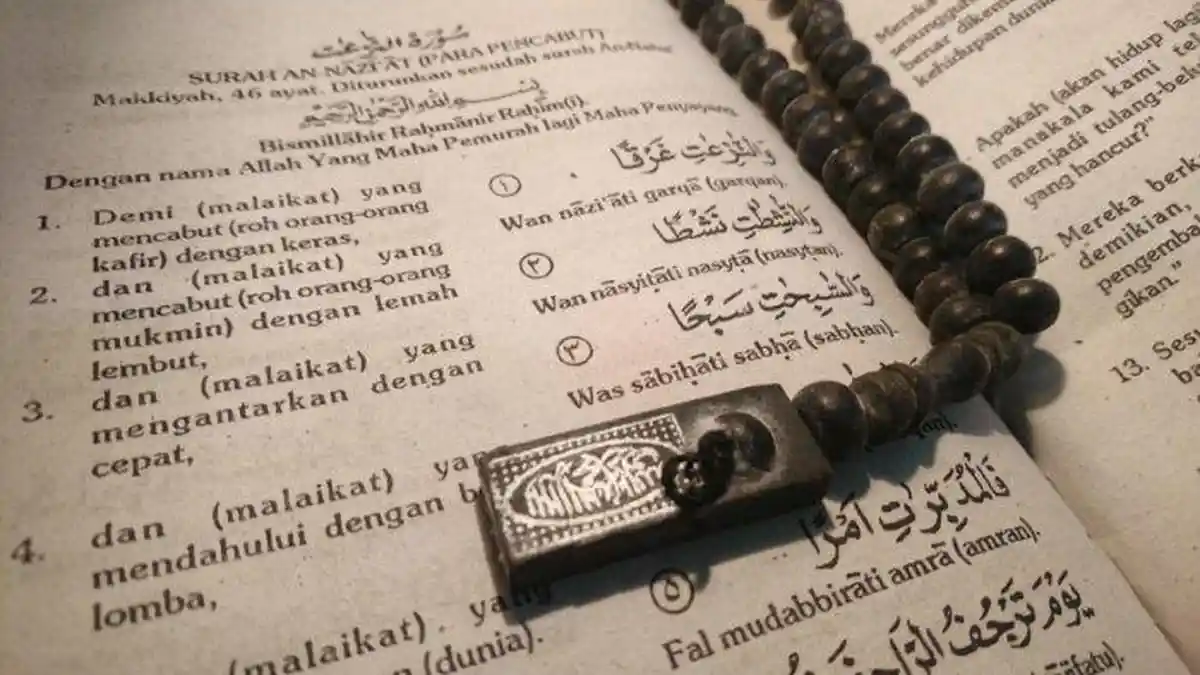 سُوْرَةُ النَّٰزِعٰتِ
SURAH AN-NĀZI'ĀT (PARA PENCABUT)
Makkiyah, 46 ayat. Diturunkan sesudah surah An-Naba'
بِسْــــمِ اللّٰهِ الرَّحْمٰنِ الرَّحِيْمِ
Bismillāhir Raḥmānir Raḥīm(i).
Dengan nama Allah Yang Maha Pemurah lagi Maha Penyayang
1. Demi (malaikat) yang
mencabut (roh orang-orang
kafir) dengan keras,
2. dan (malaikat) yang
mencabut (roh orang-orang
mukmin) dengan lemah
lembut,
3. dan (malaikat) yang
mengantarkan dengan
cepat,
4. dan (malaikat)
mendahului dengan
lomba,
(malaikat). yang
(dunia).
وَالنّٰزِعٰتِ غَرْقًا ١
Wan nāzi'āti garqā (garqan).
وَالنّٰشِطٰتِ نَشْطًا ٢
Wan nāsyiṭāti nasyṭā (nasyṭan).
وَالسّٰبِحٰتِ سَبْحًا ٣
Was sābiḥāti sabḥā (sabḥan).
فَالْمُدَبِّرٰتِ اَمْرًا ٥
Fal mudabbirāti amrā (amran).
يَوْمَ تَرْجُفُ
Mereka
sesungguh
benar dikem
kehidupan dunia
Apakah (akan hidup lagi
manakala kami
menjadi tulang-belu
yang hancur?"
2. Mereka berk
demikian,
pengemba
gikan."
13. Ses
ba